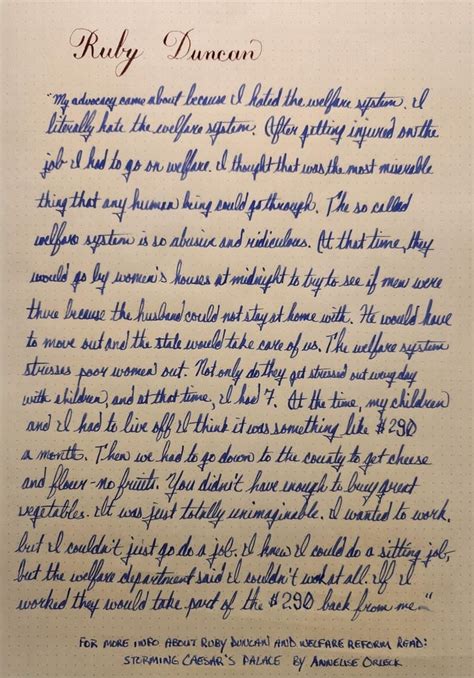 Ruby Duncan
"My advocacy came about because I hated the welfare system. I
literally hate the welfare system. After getting injured on the
job I had to go on welfare. I thought that was the most miserable
thing that any human being could go through. The so called
welfare system is so abusive and ridiculous. At that time, they
would go by women's houses at midnight to try to see if men were
there because the husband could not stay at home with. He would have
to move out and the state would take care of us. The welfare system
stresses poor women out. Not only do they get stressed out every day
with children, and at that time, I had 7. At the time, my children
and I had to live off I think it was something like $290
a month. Then we had to go down to the county to get cheese
and flour - no fruits. You didn't have enough to buy great
vegetables. It was just totally unimaginable. I wanted to work,
but I couldn't just go do a job. I knew I could do a sitting job,
but the welfare department said I couldn't work at all. If I
worked they would take part of the $290 back from me."
FOR MORE INFO ABOUT RUBY DUNCAN AND WELFARE REFORM READ:
STORMING CAESAR'S PALACE BY ANNELISE ORLECK